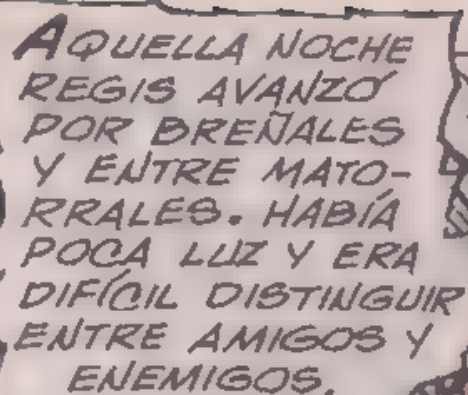 AQUELLA NOCHE
REGIS AVANZÓ
POR BREÑALES
Y ENTRE MATO-
RRALES. HABÍA
POCA LUZ Y ERA
DIFÍCIL DISTINGUIR
ENTRE AMIGOS Y
ENEMIGOS.